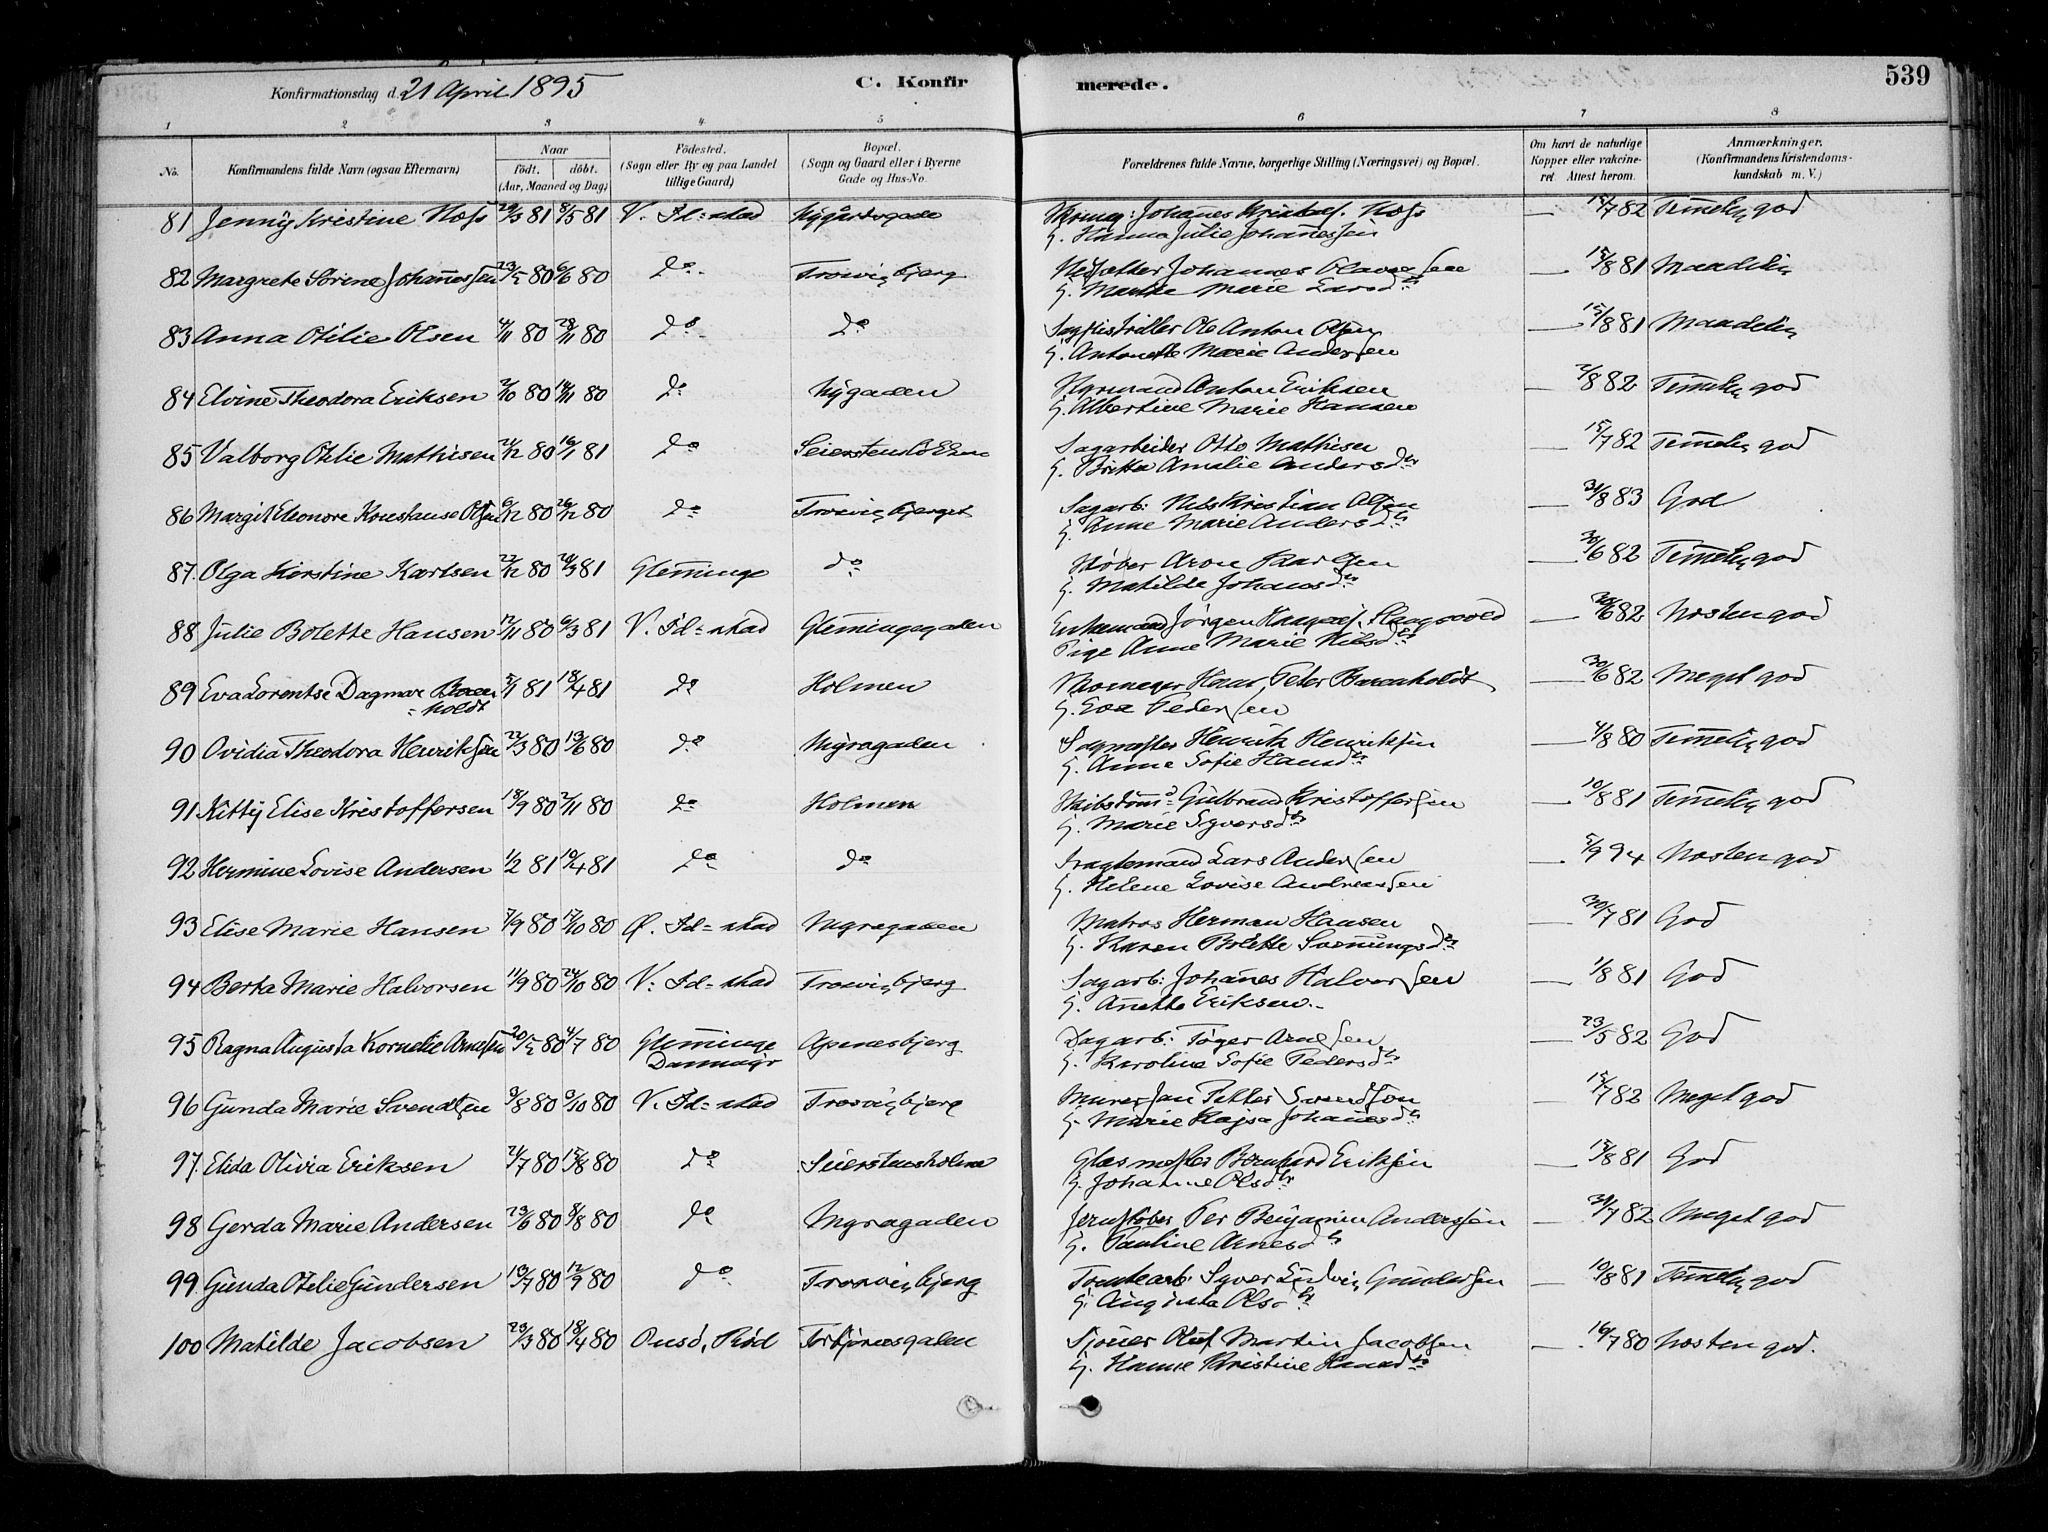 Konfirmationsdag d. 21 April 1895
C. Konfirmerede.
539
1 2 3 4 5 6 7 8
No. Konfirmandens fulde Navn (ogsaa Efternavn) Naar født. døbt. (Aar, Maaned og Dag) Fødested. (Sogn eller By og paa Landet tillige Gaard) Bopæl. (Sogn og Gaard eller i Byerne Gade og Hus-No. Forældrenes fulde Navne, borgerlige Stilling (Næringsvei) og Bopæl. Om havt de naturlige Kopper eller vakcineret. Attest herom. Anmærkninger. (Konfirmandens Kristendomskundskab m. V.)
81 Jenny Kristine Næss 29/3 81 8/5 81 V. Fd=stad Nygårdsgade Johannes Næss — 15/7 82 Temmelig god
G. Hanna Julie Johannessen
82 Margrete Sørine Johannessen 23/5 80 6/6 80 do Trosvigbjerg Johannes — 15/8 81 Maadelig
G. Marie Larsdtr
83 Anna Otilie Olsen 4/11 80 28/11 80 do do Ole Anton Olsen — 15/8 81 Maadelig
G. Antonette Marie Andersen
84 Elvine Theodora Eriksen 2/10 80 14/11 80 do Nygaden Styrmand Anton Eriksen — 2/8 82 Temmelig god
G. Albertine Marie Hansen
85 Valborg Otilie Mathisen 21/12 80 16/1 81 do Sagarbeider Otto Mathisen — 15/7 82 Temmelig god
G. Britta Amalie Andersdtr
86 Margit Eleonore Konstanse Olsen 6/12 80 26/12 80 do Trosvigbjerget Sagarb: Nils Kristian Olsen — 31/8 83 God
G. Anne Marie Andersdtr
87. Olga Kirstine Karlsen 22/12 80 20/3 81 Glemminge do Støber Aron Karlsen — 30/6 82 Temmelig god
G. Matilde Johansdtr
88 Julie Bolette Hansen 12/11 80 6/3 81 V. Fd=stad Glemmingegaden Enkemand Jørgen — 30/6 82 Næsten god
Pige Anne Marie Nilsdtr
89 Eva Lorentse Dagmar Baren=holdt 5/1 81 18/4 81 do Holmen Hans Peter Barenholdt — 30/6 82 Meget god
G. Eva Pedersen
90 Ovidia Theodora Henriksen 22/3 80 13/6 80 do Nygragaden Sagmester Henrik Henriksen — 4/8 80 Temmelig god
G. Anne Sofie Hansdtr
91 Kitty Elise Kristoffersen 18/9 80 2/11 80 do Holmen Skibstømm: Gulbrand Kristoffersen — 10/8 81 Temmelig god
G. Marie Syversdtr
92 Hermine Lovise Andersen 1/2 81 10/4 81 do do Fragtemand Lars Andersen — 5/9 94 Næsten god
G. Helene Lovise Andreassen
93 Elise Marie Hansen 7/9 80 17/10 80 Ø. Fd=stad Nygragaden Matros Herman Hansen — 30/7 81 God
G. Karen Bolette Svenningsdtr
94 Berta Marie Halvorsen 11/9 80 24/10 80 V: Fd=stad Trosvigbjerg Sagarb: Johannes Halvorsen — 1/8 81 God
G. Anette Eriksen.
95 Ragna Augusta Kornelie Arnesen 20/5 80 4/7 80 Glemminge Apenesbjerg Dagarb: Tøger Arnesen — 23/5 82 God
G. Karoline Sofie Pedersdtr
96 Gunda Marie Svendsen 3/8 80 3/10 80 V. Fd=stad Trosvigbjerg Murer Jan Petter Svendsen — 15/7 82 Meget god
G. Marie Kajsa Johannesdtr
97. Elida Olivia Eriksen 21/7 80 15/8 80 do Seierstensholme Glasmester Bernhard Eriksen — 15/8 81 God
G. Johanne Olsdtr
98 Gerda Marie Andersen 23/6 80 8/8 80 do Nygragaden Jernstøber Per Benjamin Anderssen — 31/7 82 Meget god
G. Pauline Arnesdtr
99 Gunda Otilie Gundersen 13/7 80 12/9 80 do Trosvigbjerg Tomtearb: Syver Ludvig Gundersen — 10/8 81 Temmelig god
G. Augusta Olsdtr
100 Matilde Jacobsen 23/3 80 18/4 80 Onsø, Rød Torbjørnsgaden Sjouer Oluf Martin Jacobsen — 16/7 80 Næsten god.
G. Hanne Kristine Hansdtr